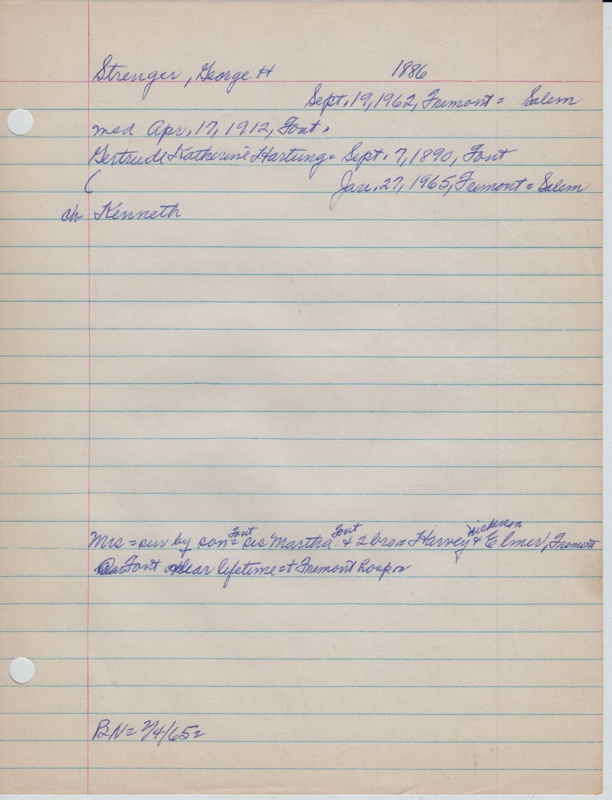 Strenger, George H 1886
Sept. 19, 1962, Fremont = Salem
med Apr. 17, 1912, Font.
Gertrude Katherine Hartung = Sept. 7, 1890, Font
( Jan. 27, 1965, Fremont = Salem
ch Kenneth
Mrs = sur by son = Font sis Martha Font & 2 bro = Harvey Nickerson & Elmer, Fremont
Font near lifetime = + Fremont hosp =
BN = 2/4/65 =